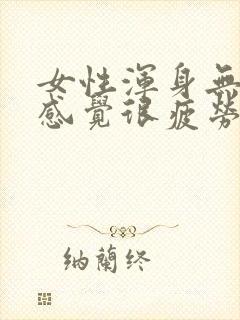 女性渾身無
感覺很疲勞
納蘭終